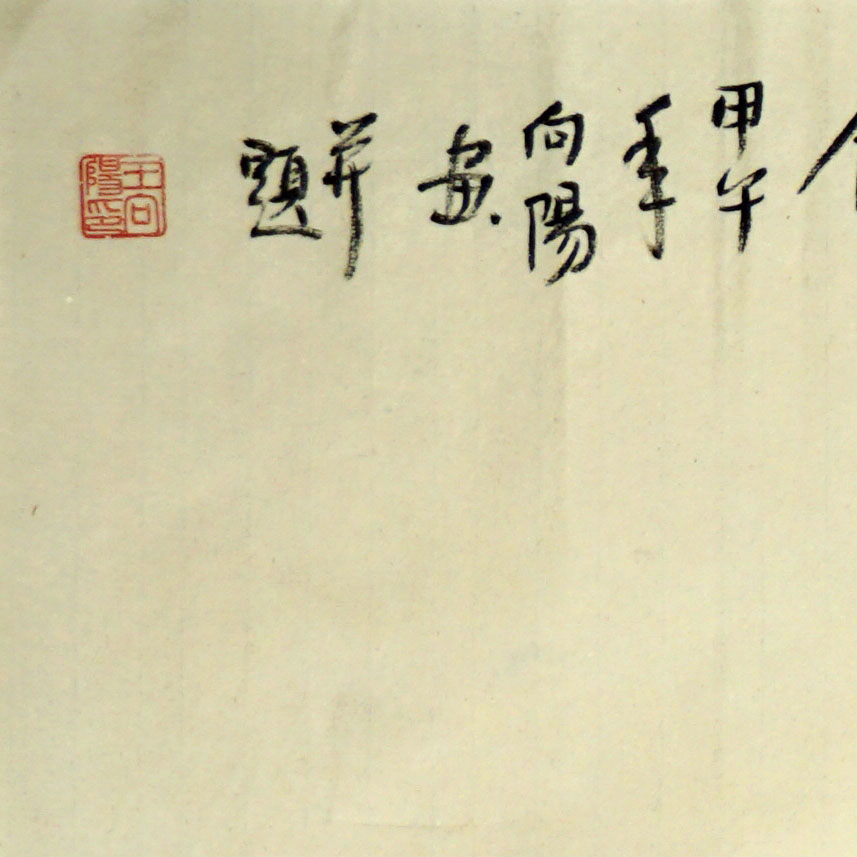 甲午
年
向陽
畫
并
題
王向
陽印